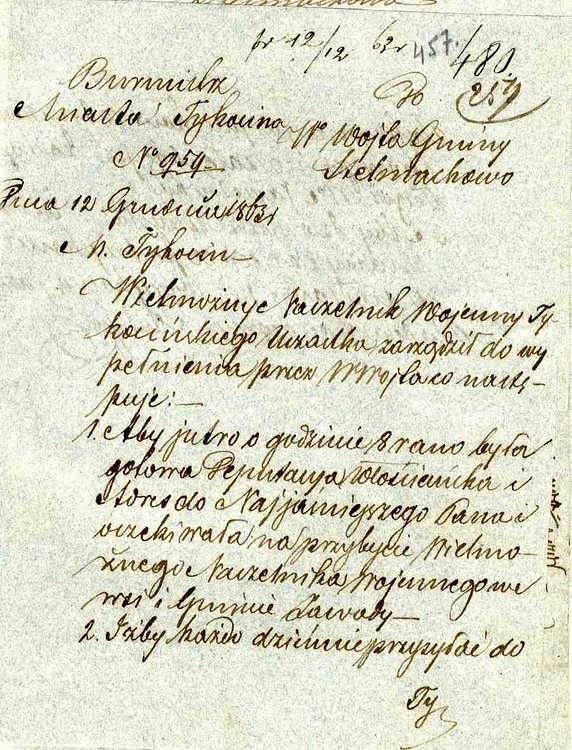 pr 12/12 63r 457. 480
257
Burmistrz
Miasta Tykocina
Do
Wo Wójta Gminy
Stelmachowo
No 959
Dnia 12 Grudnia 1863r
M. Tykocin
Wielmożny Naczelnik Wojenny Ty-
kocińskiego Uczastka zarządził do wy
pełnienia przez WWójta co nastę-
puje:—
1. Aby jutro o godzinie 8 rano była
gotowa Deputacya Włościańska i
Adres do Najjaśniejszego Pana i
oczekiwała na przybycie Wielmo-
żnego Naczelnika Wojennego we
wsi i Gminie Zawady—
2. Iżby każdo dziennie przysyłać do
Ty